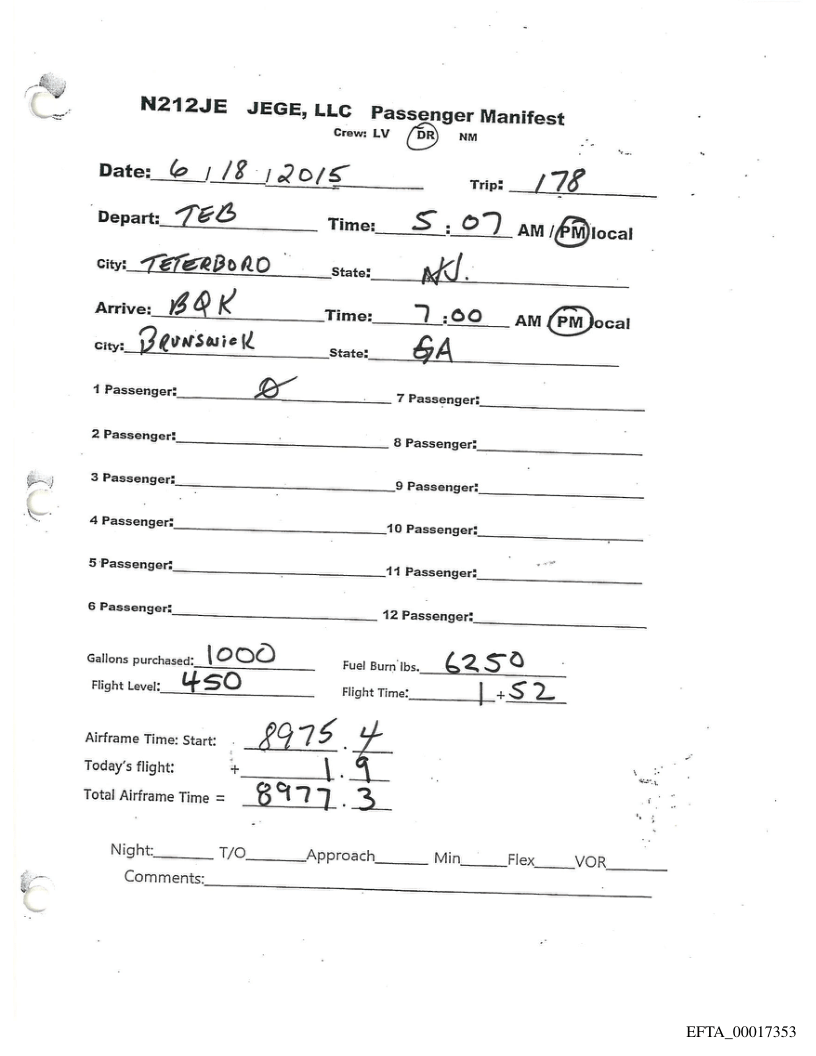 N212JE JEGE, LLC Passenger Manifest
Crew: LV DR NM
Date: 6 / 18 / 2015 Trip: 178
Depart: TEB Time: 5 : 07 AM / PM local
City: TETERBORO State: NJ.
Arrive: BQK Time: 7 :00 AM / PM local
City: BRUNSWICK State: GA
1 Passenger: 0 7 Passenger:
2 Passenger: 8 Passenger:
3 Passenger: 9 Passenger:
4 Passenger: 10 Passenger:
5 Passenger: 11 Passenger:
6 Passenger: 12 Passenger:
Gallons purchased: 1000 Fuel Burn lbs. 6250
Flight Level: 450 Flight Time: 1 + 52
Airframe Time: Start: 8975 . 4
Today's flight: + 1 . 9
Total Airframe Time = 8977 . 3
Night: T/O Approach Min Flex VOR
Comments:
EFTA_00017353